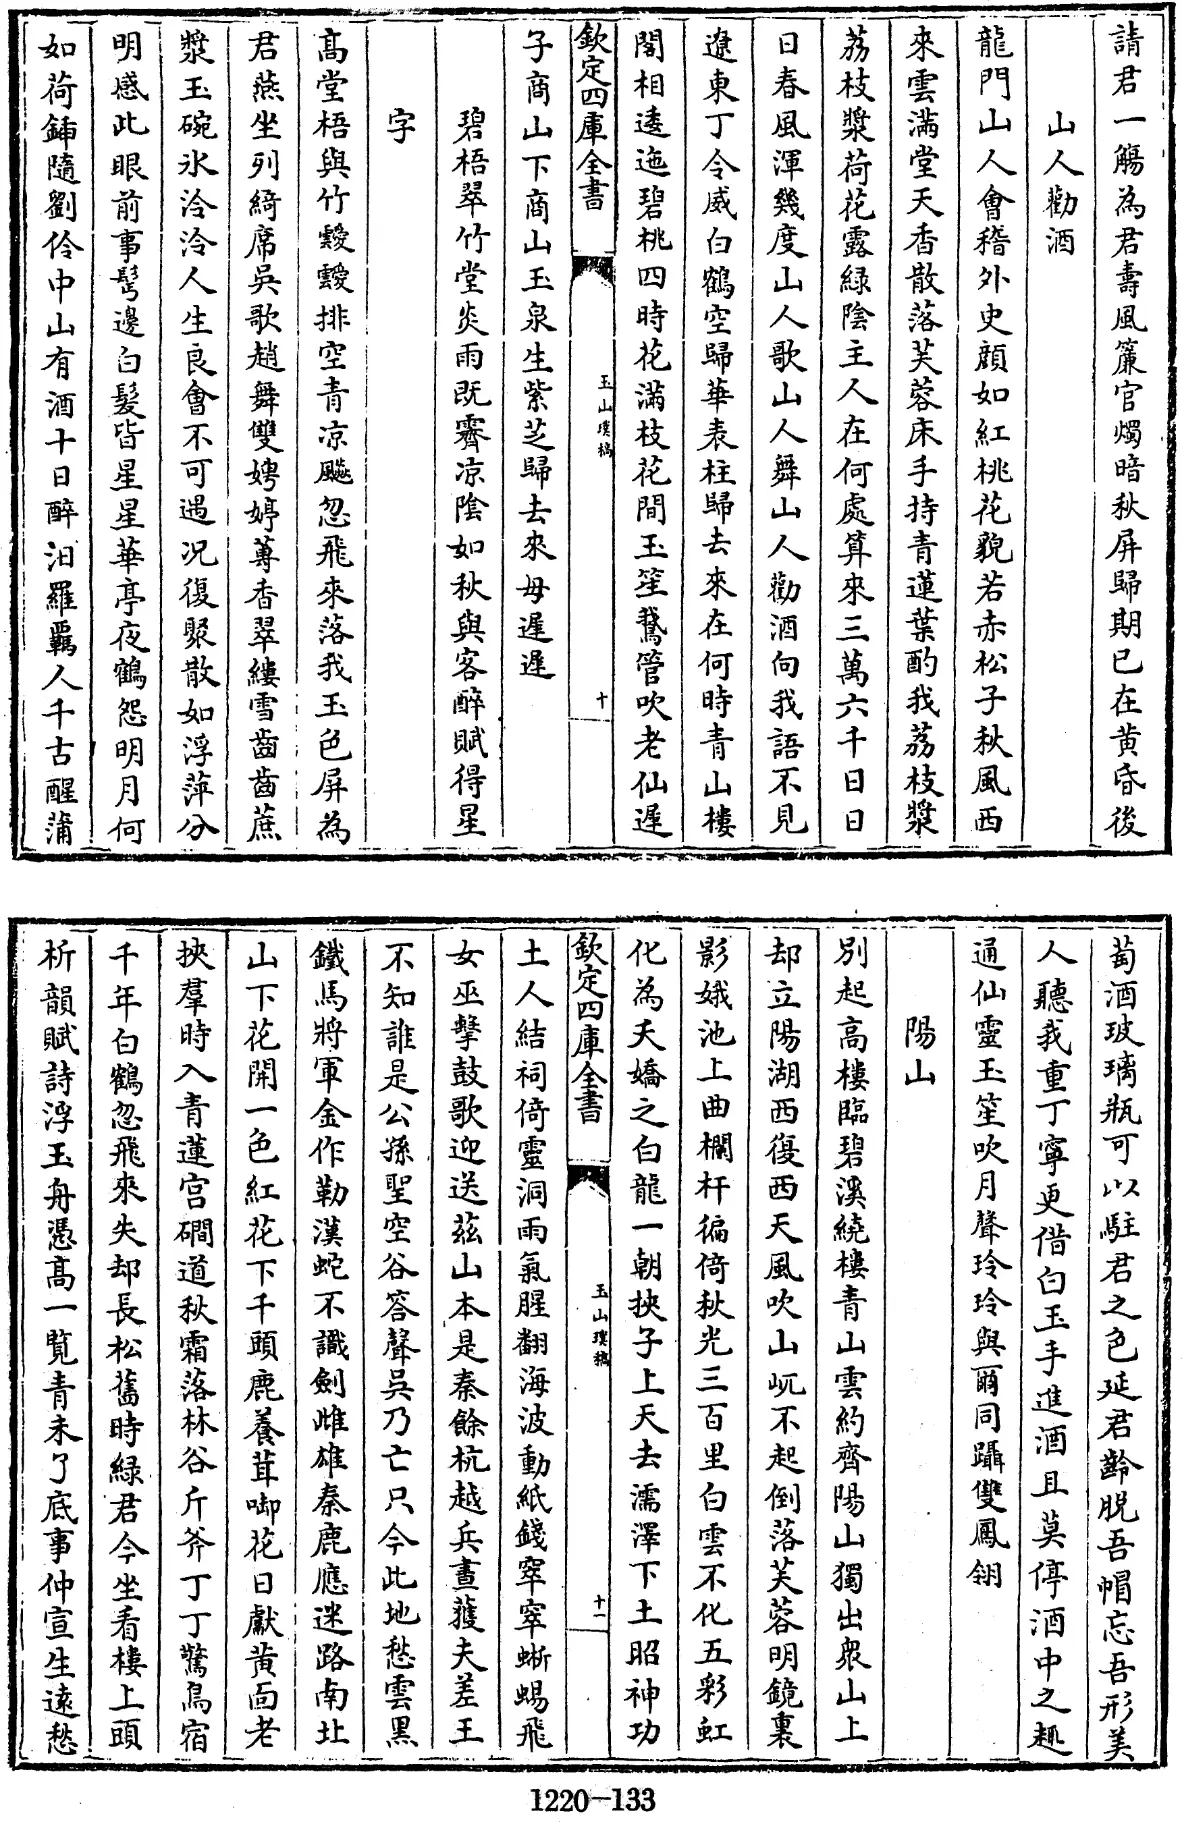 請君一觴為君壽風簾官燭暗秋屏歸期已在黄昏後
山人勸酒
龍門山人會稽外史顔如紅桃花貌若赤松子秋風西
來雲滿堂天香散落芙蓉床手持青蓮葉酌我荔枝漿
荔枝漿荷花露緑陰主人在何處算來三萬六千日日
日春風渾幾度山人歌山人舞山人勸酒向我語不見
遼東丁令威白鶴空歸華表柱歸去來在何時青山樓
閣相逶迤碧桃四時花滿枝花間玉笙鵞管吹老仙遲
欽定四庫全書
玉山璞稿
十
子商山下商山玉泉生紫芝歸去來毋遲遲
碧梧翠竹堂炎雨既霽凉陰如秋與客醉賦得星
字
高堂梧與竹靉靉排空青凉飈忽飛來落我玉色屏為
君燕坐列綺席吳歌趙舞雙娉婷蓴香翠縷雪齒齒蔗
漿玉碗氷泠泠人生良會不可遇况復聚散如浮萍分
明感此眼前事鬂邊白髮皆星星華亭夜鶴怨明月何
如荷鍤隨劉伶中山有酒十日醉汨羅羈人千古醒蒲
萄酒玻瓈瓶可以駐君之色延君齡脱吾帽忘吾形美
人聽我重丁寧更借白玉手進酒且莫停酒中之趣
通仙靈玉笙吹月聲玲玲與爾同躡雙鳳翎
陽山
別起高樓臨碧溪繞樓青山雲約齊陽山獨出衆山上
却立陽湖西復西天風吹山屼不起倒落芙蓉明鏡裏
影娥池上曲欄杆徧倚秋光三百里白雲不化五彩虹
化為夭嬌之白龍一朝挾子上天去濡澤下土昭神功
欽定四庫全書
玉山璞稿
十一
土人結祠倚靈洞雨氣腥翻海波動紙錢窣窣蜥蜴飛
女巫擊鼓歌迎送茲山本是秦餘杭越兵晝獲夫差王
不知誰是公孫聖空谷答聲吳乃亡只今此地愁雲黑
鐵馬將軍金作勒漢蛇不識劍雌雄秦鹿應迷路南北
山下花開一色紅花下千頭鹿養茸啣花日獻黄面老
挾羣時入青蓮宫磵道秋霜落林谷斤斧丁丁驚鳥宿
千年白鶴忽飛來失却長松舊時緑君今坐看樓上頭
析韻賦詩浮玉舟憑高一覽青未了底事仲宣生遠愁
1220-133